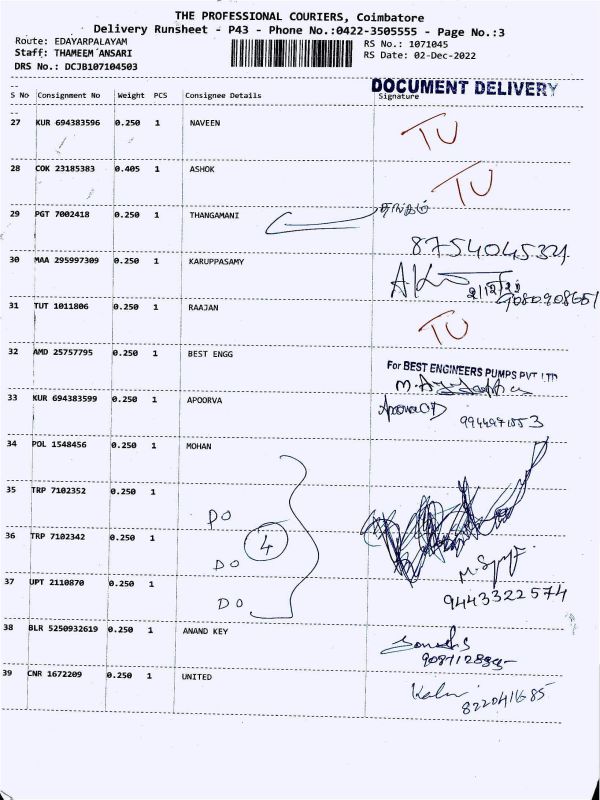 THE PROFESSIONAL COURIERS, Coimbatore
Delivery Runsheet - P43 - Phone No.:0422-3505555 - Page No.:3
Route: EDAYARPALAYAM RS No.: 1071045
Staff: THAMEEM ANSARI RS Date: 02-Dec-2022
DRS No.: DCJB107104503
DOCUMENT DELIVERY
S No Consignment No Weight PCS Consignee Details Signature
27 KUR 694383596 0.250 1 NAVEEN TU
28 COK 23185383 0.405 1 ASHOK TU
29 PGT 7002418 0.250 1 THANGAMANI
8754045321
30 MAA 295997309 0.250 1 KARUPPASAMY
9080908651
31 TUT 1011806 0.250 1 RAAJAN TU
32 AMD 25757795 0.250 1 BEST ENGG
For BEST ENGINEERS PUMPS PVT LTD
33 KUR 694383599 0.250 1 APOORVA Apoorva
34 POL 1548456 0.250 1 MOHAN
35 TRP 7102352 0.250 1
DO
36 TRP 7102342 0.250 1 4
DO
37 UPT 2110870 0.250 1
DO 9443322574
38 BLR 5250932619 0.250 1 ANAND KEY
39 CNR 1672209 0.250 1 UNITED
8220411685